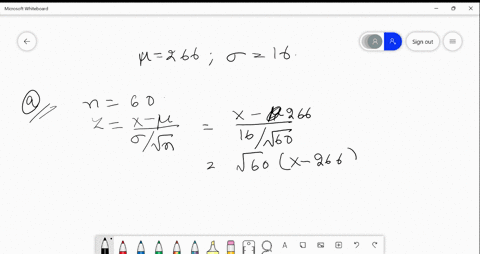 Microsoft Whiteboard
Sign out
μ = 266 ; σ = 16.
ⓐ n = 60
z = x - μ / σ/√n = x - 266 / 16/√60
= √60 (x - 266)